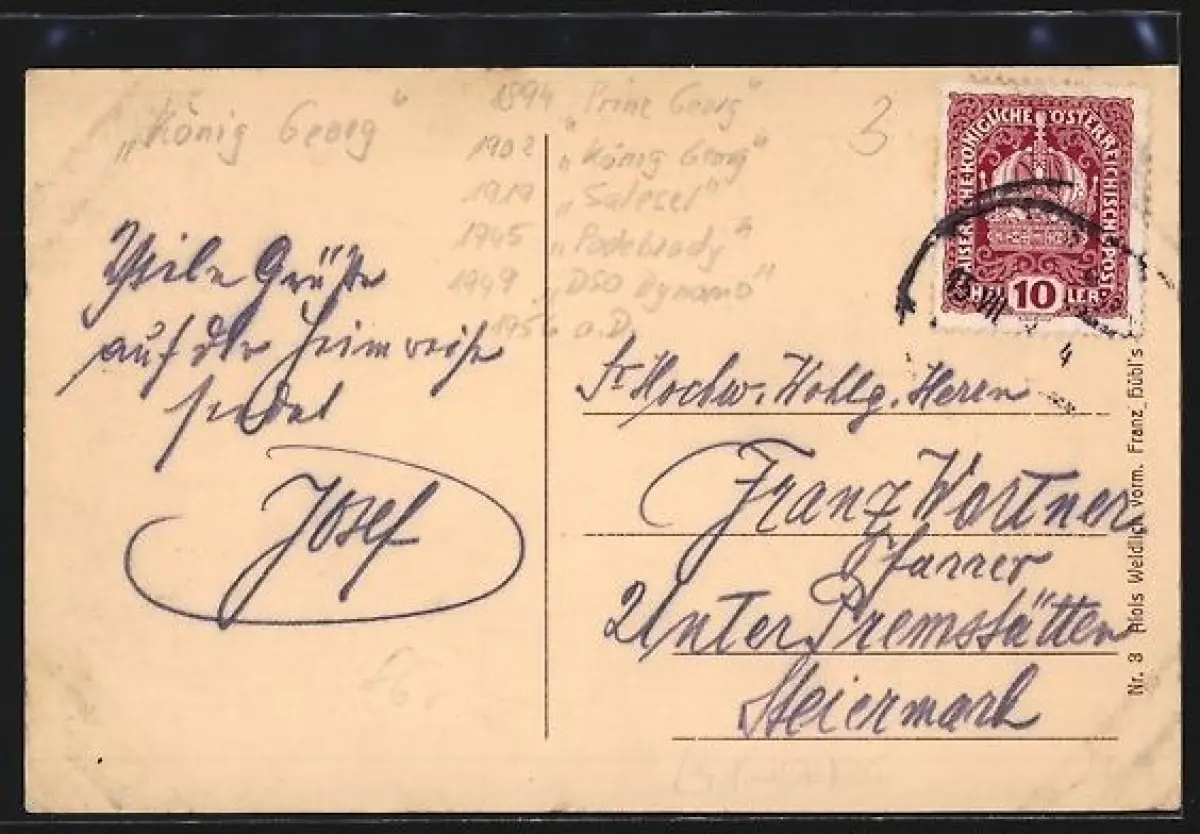 „König Georg"
1894 „Prinz Georg"
1902 „König Georg"
1919 „Salesel"
1945 „Podebrady"
1949 „DSO Dynamo"
1956 a. D.
3
KAISERLICHE KÖNIGLICHE ÖSTERREICHISCHE POST
HELLER
10
Viele Grüße
auf der Heimreise
sendet
Josef
Sr Hochw. Wohlg. Herrn
Franz Wortner
Pfarrer
Unter Premstätten
Steiermark
Nr. 3 Alois Weidlich vorm. Franz Hübl's